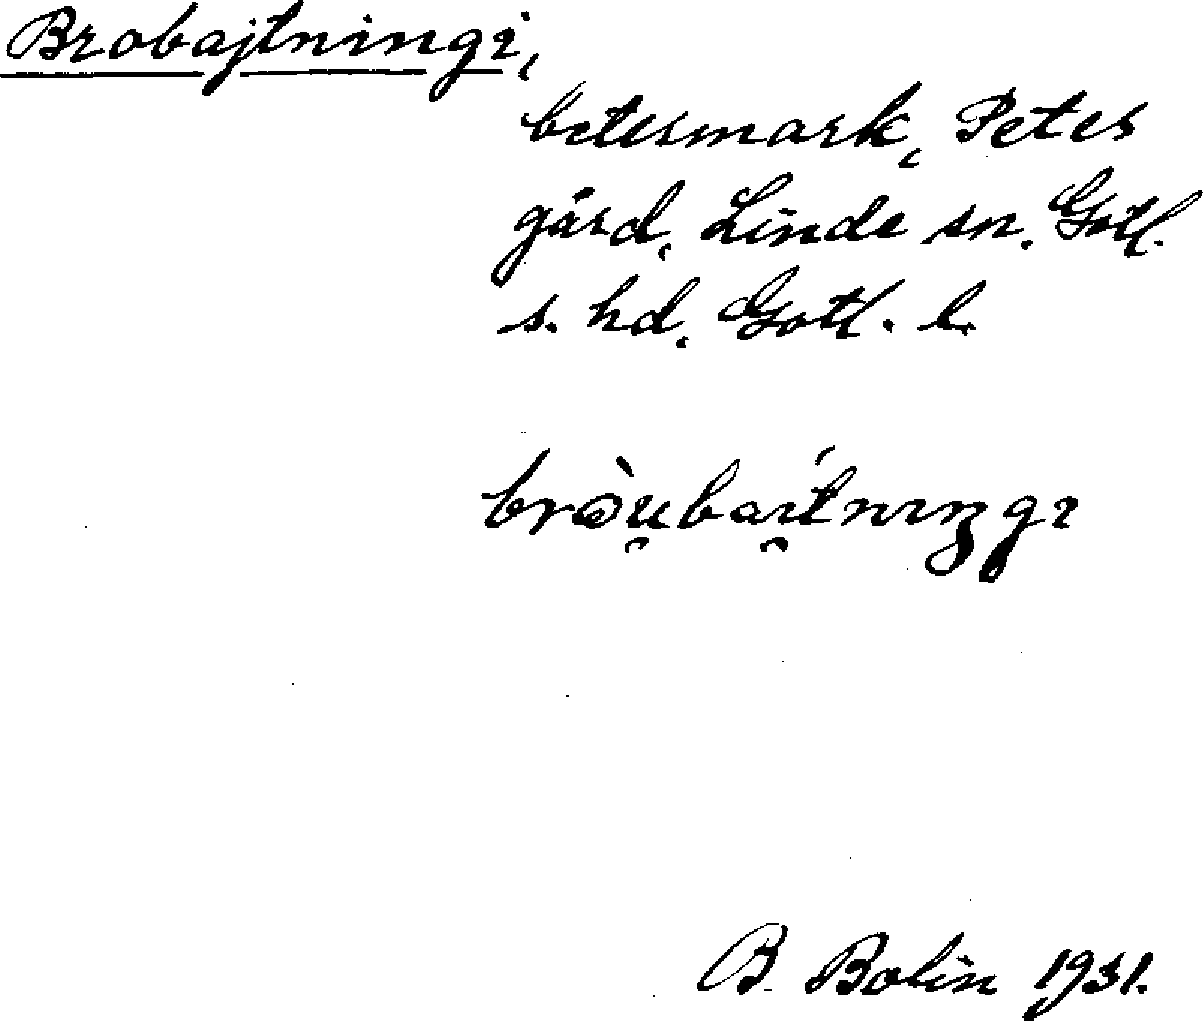 Brobajtningi,
betesmark, Petes
gård, Linde sn. Gotl.
s. hd, Gotl. l.
bròu̯bai̯tnıŋgı
B. Bolin 1931.